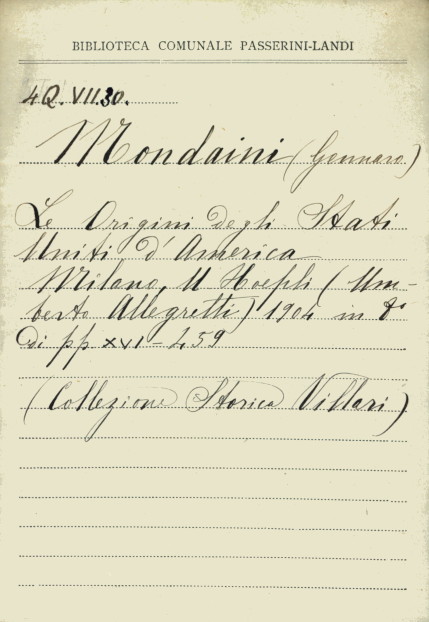 BIBLIOTECA COMUNALE PASSERINI-LANDI
4Q. VII.30.
Mondaini (Gennaro)
Le Origini degli Stati
Uniti d'America
Milano, U Hoepli (Um-
berto Allegretti) 1904 in 8°
di pp XVI-459
(Collezione Storica Villari)